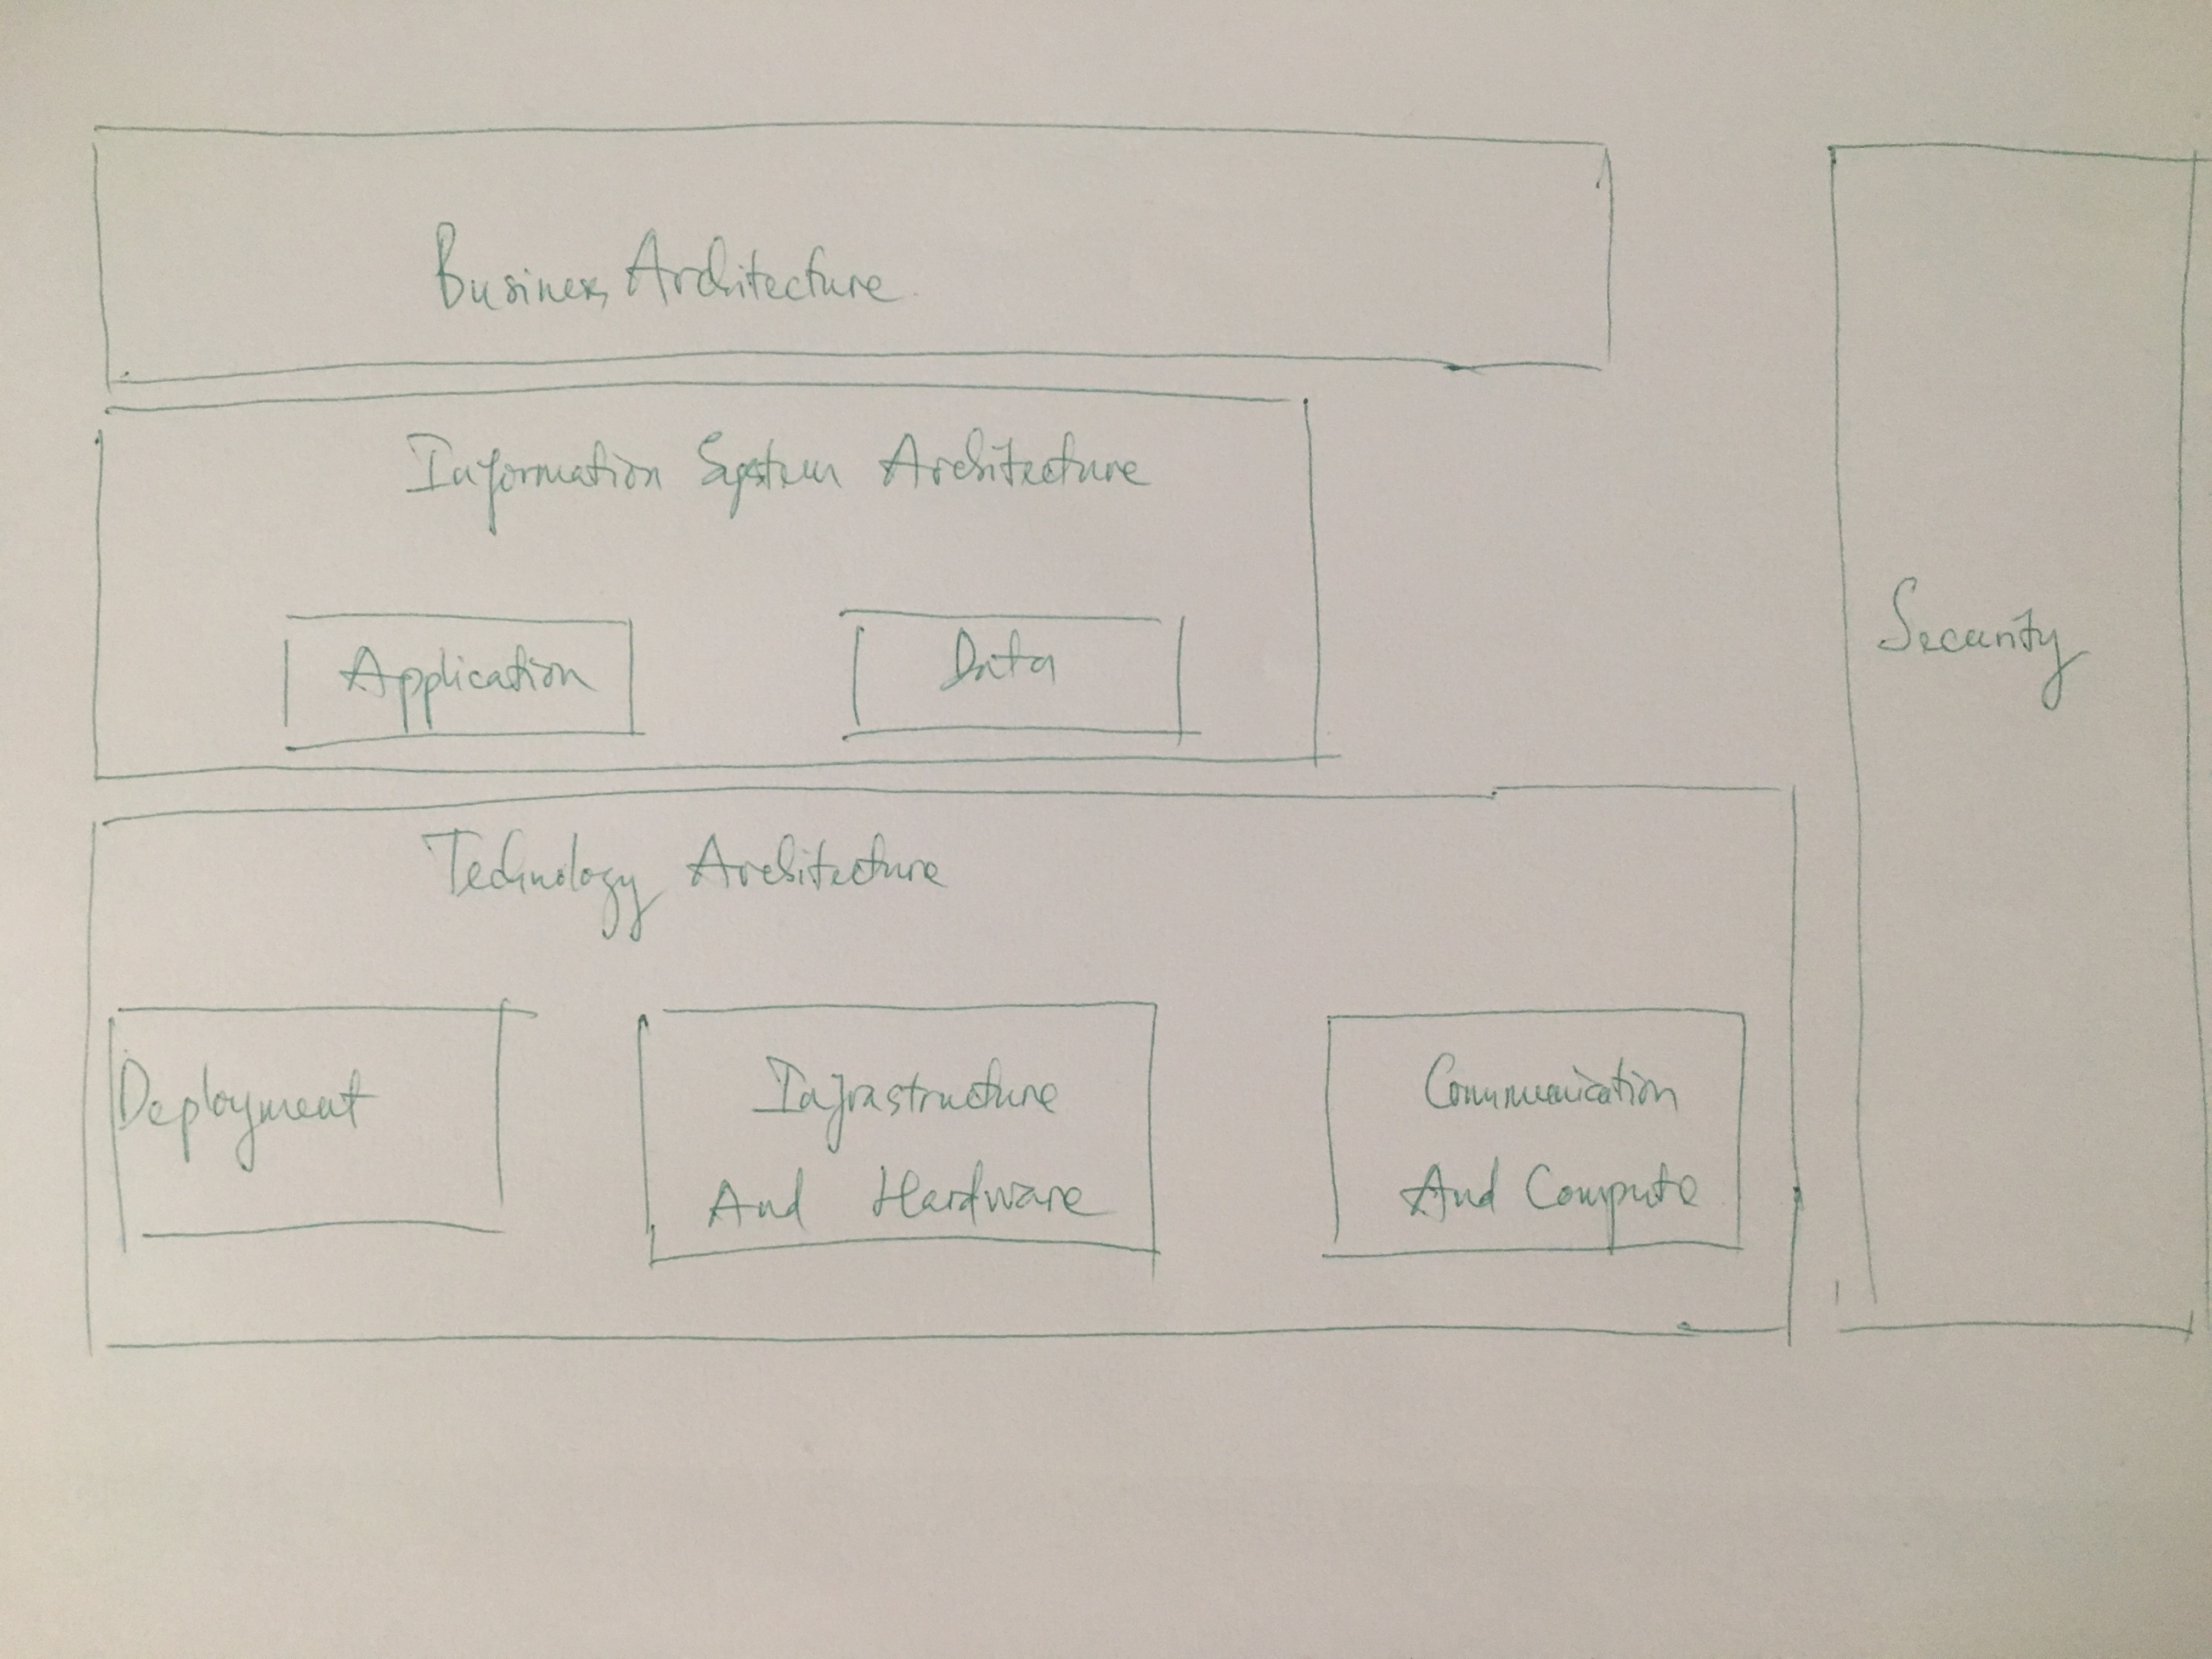 Business Architecture
Information System Architecture
Application
Data
Technology Architecture
Deployment
Infrastructure
And Hardware
Communication
And Compute
Security